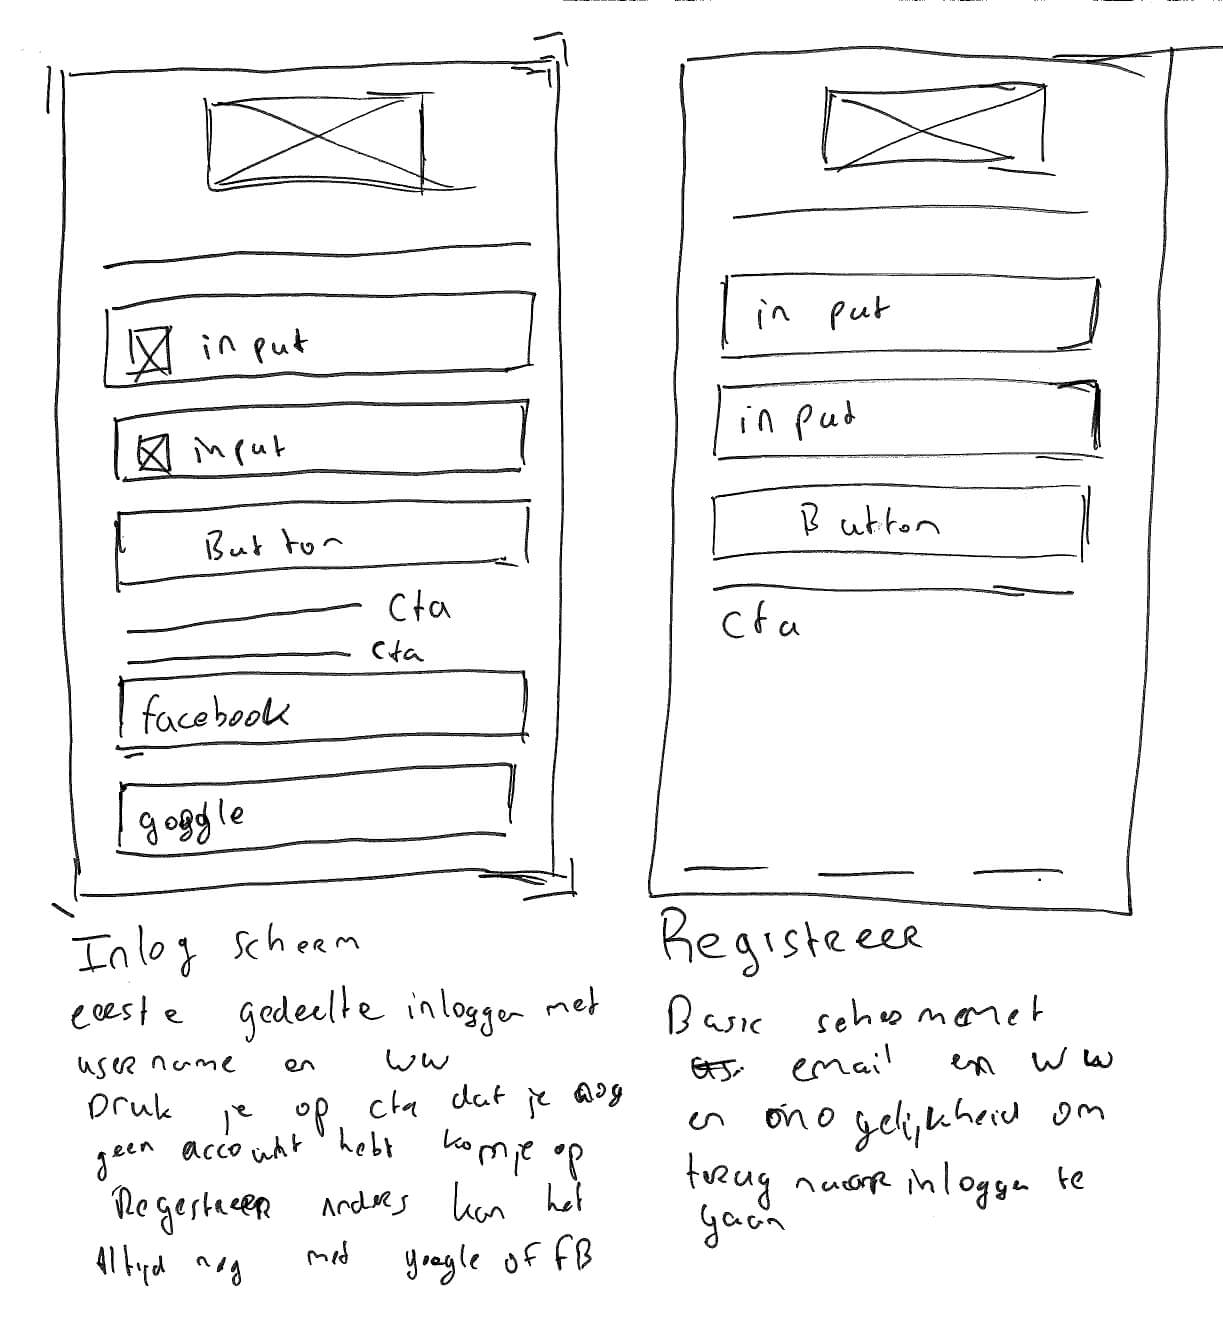 input
input
Button
cta
cta
facebook
google
Inlog scherm
eerste gedeelte inloggen met
username en ww
Druk je op cta dat je nog
geen account hebt kom je op
Regestreer anders kan het
Altijd nog met google of FB
in put
in put
Button
cta
Registreer
Basic met
email en ww
en om
terug naar inloggen te
gaan